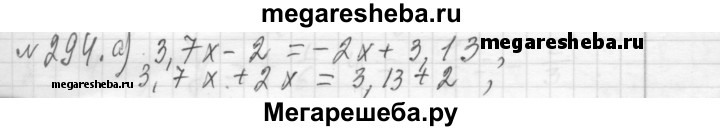 megaresheba.ru
№ 294. а) 3,7x - 2 = -2x + 3,13,
3,7x + 2x = 3,13 + 2,
megaresheba.ru
megaresheba.ru
Мегарешеба.ру